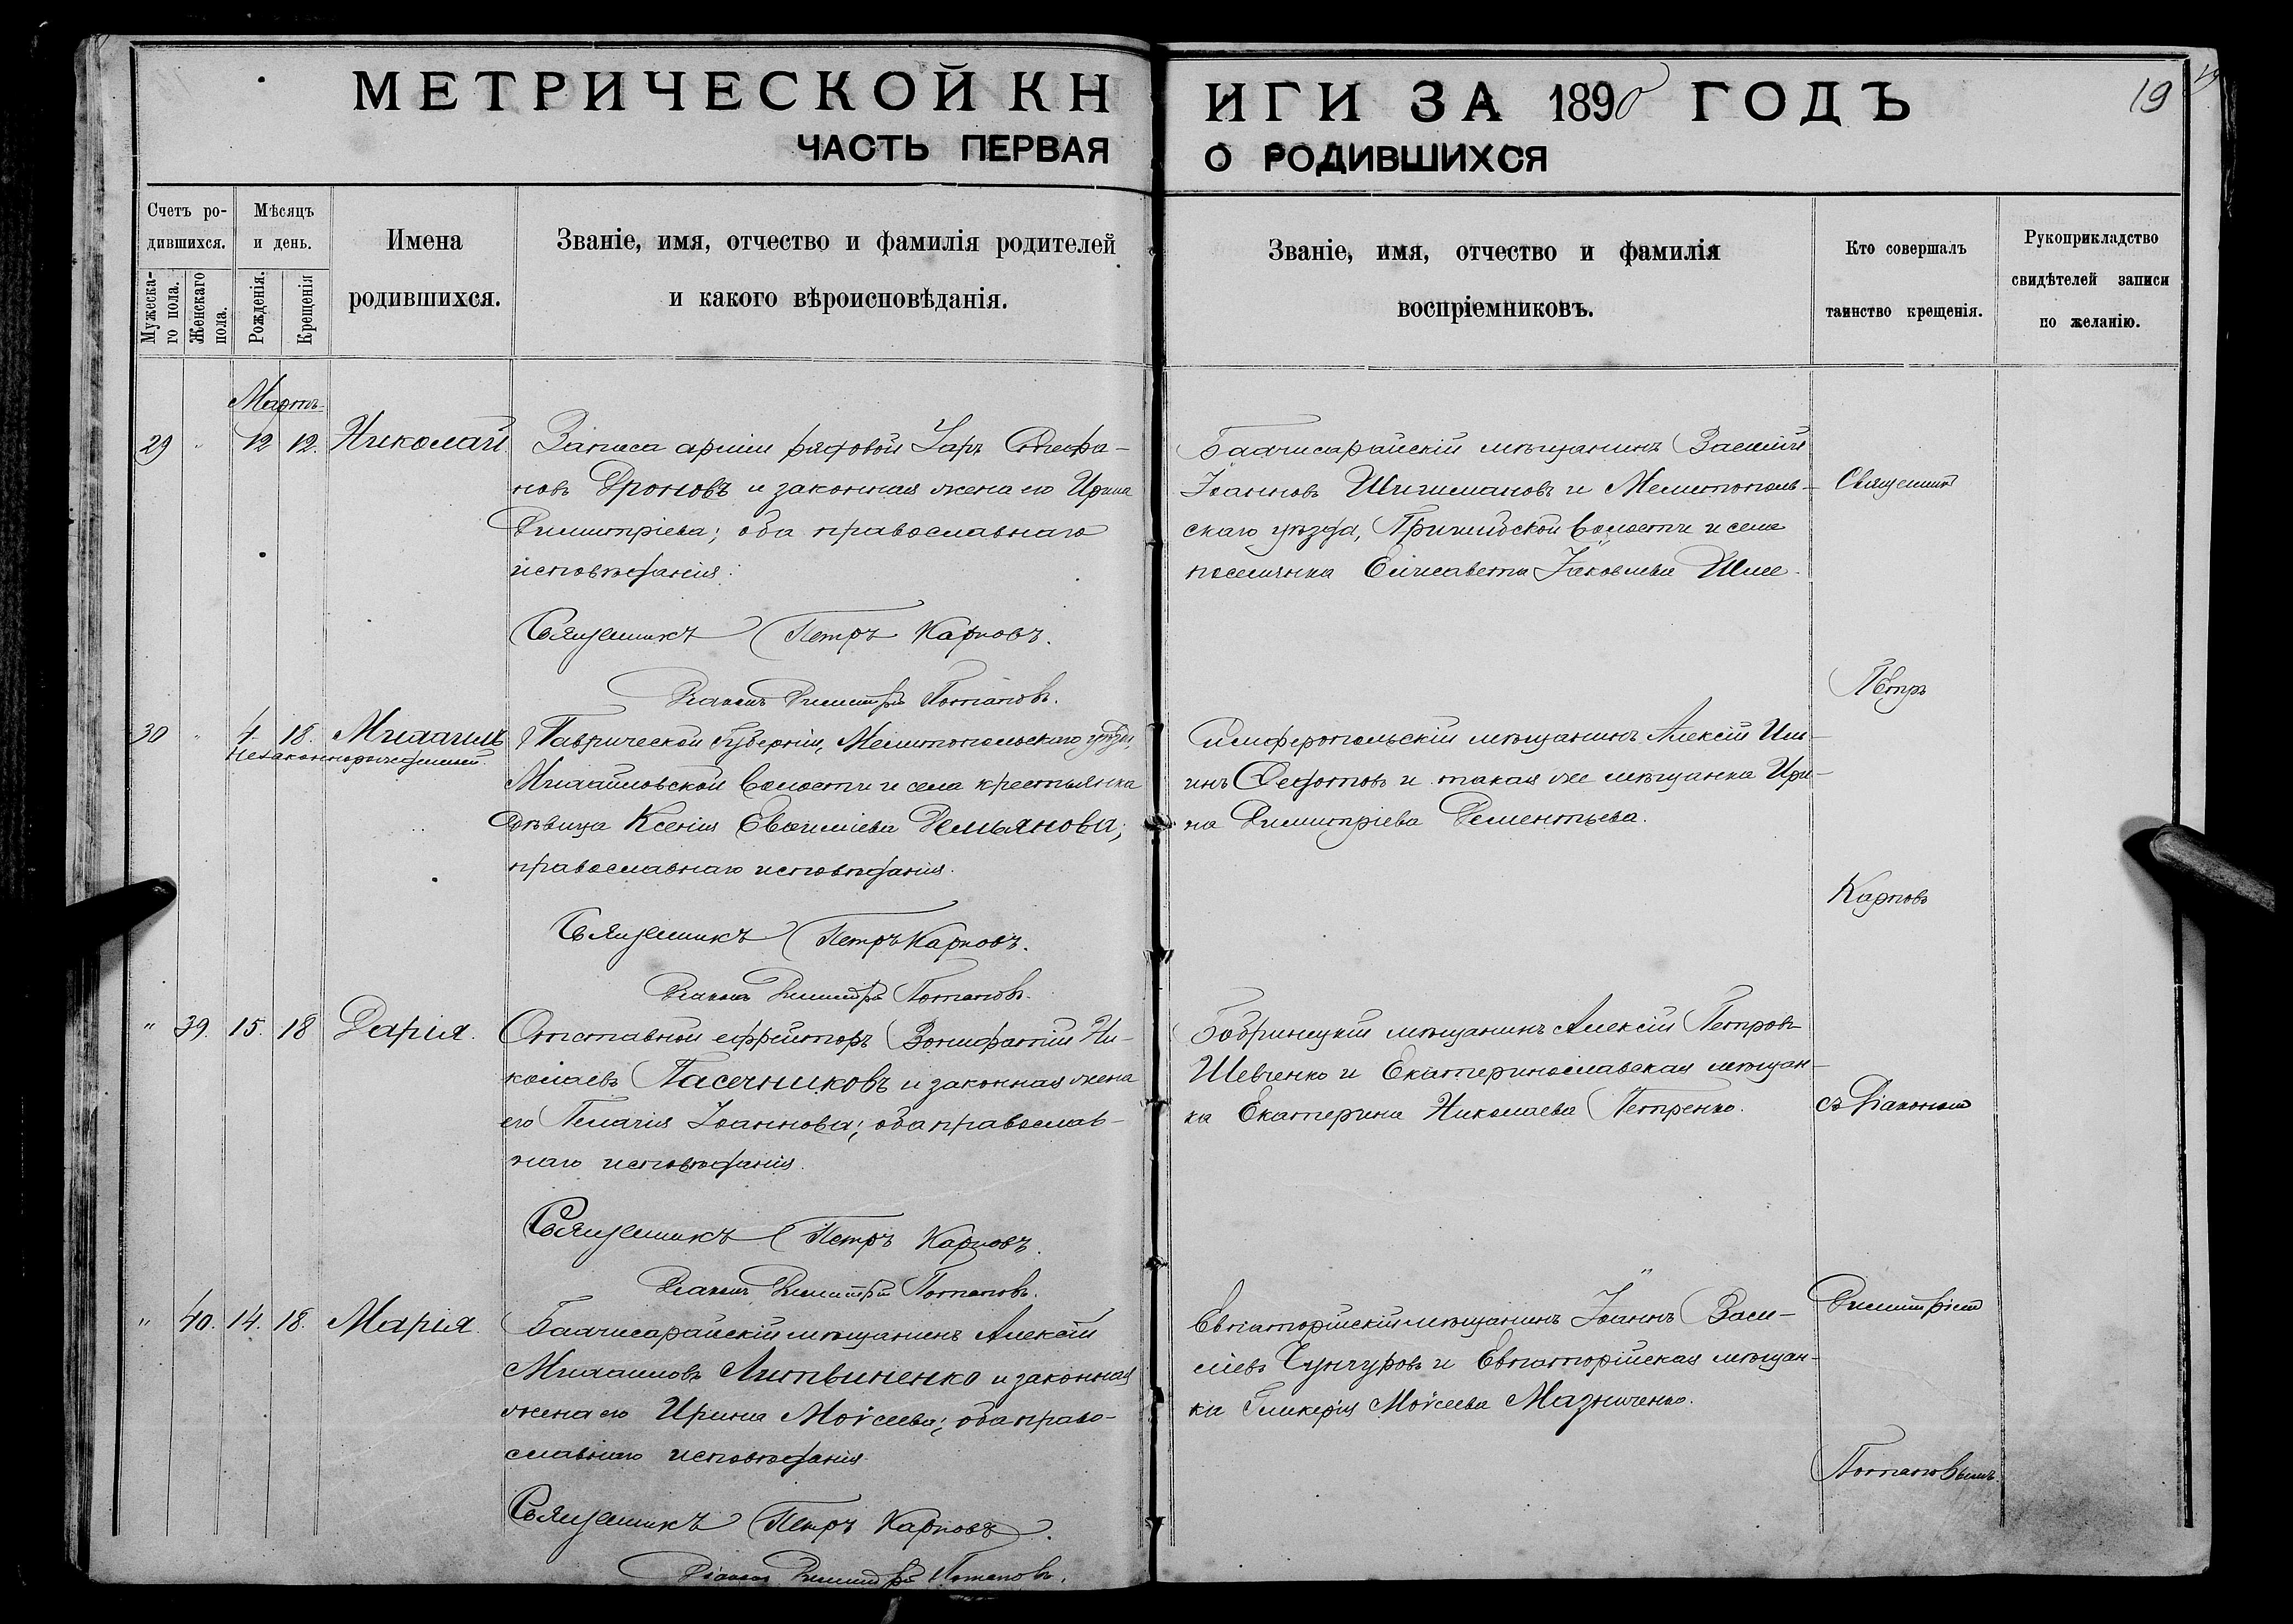 МЕТРИЧЕСКОЙ КНИГИ ЗА 1890 ГОДЪ
19
ЧАСТЬ ПЕРВАЯ О РОДИВШИХСЯ
Счетъ ро-
дившихся.
Мужеска-
го пола.
Женскаго
пола.
Мѣсяцъ
и день.
Рожденія.
Крещенія
Имена
родившихся.
Званіе, имя, отчество и фамилія родителей
и какого вѣроисповѣданія.
Званіе, имя, отчество и фамилія
воспріемниковъ.
Кто совершалъ
таинство крещенія.
Рукоприкладство
свидѣтелей записи
по желанію.
Мартъ
29 " 12 12. Николай.
Запаса арміи рядовой Стефа-
новъ Дроновъ и законная жена его Ирина
Димитріева; оба православнаго
исповѣданія.
Священникъ Петръ Карповъ.
Діаконъ Димитрій Потаповъ.
Бахчисарайскій мѣщанинъ Василій
Іоанновъ Шишмановъ и Мелитополь-
скаго уѣзда, волости и села
поселянка Елисавета Іаковлева
30 " 4 18. Михаилъ
Незаконнорожденный.
Таврической Губерніи, Мелитопольскаго уѣзда,
Михайловской волости и села крестьянка
дѣвица Ксенія Демьянова;
православнаго исповѣданія.
Священникъ Петръ Карповъ.
Діаконъ Димитрій Потаповъ.
Симферопольскій мѣщанинъ Алексій Иль-
инъ Федотовъ и такая же мѣщанка Ири-
на Димитріева Дементьева.
" 39. 15. 18 Дарія.
Отставной ефрейторъ Вонифатій Ни-
колаевъ Пасечниковъ и законная жена
его Пелагія Іоаннова; оба православ-
наго исповѣданія.
Священникъ Петръ Карповъ.
Діаконъ Димитрій Потаповъ.
Бобринецкій мѣщанинъ Алексій Петровъ
Шевченко и Екатеринославская мѣщан-
ка Екатерина Николаева Петренко.
" 40. 14. 18. Марія.
Бахчисарайскій мѣщанинъ Алексій
Михаиловъ Литвиненко и законная
жена его Ирина Моісеева; оба право-
славнаго исповѣданія
Священникъ Петръ Карповъ.
Діаконъ Димитрій Потаповъ.
Евпаторійскій мѣщанинъ Іоаннъ Васи-
ліевъ Чунчуровъ и Евпаторійская мѣщан-
ка Гликерія Моісеева Мазниченко.
Священникъ
Петръ
Карповъ
съ Діакономъ
Димитріемъ
Потаповымъ.